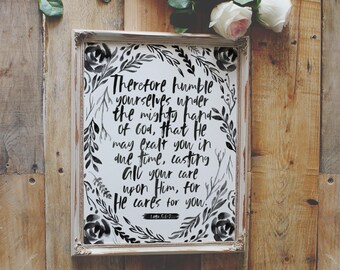 Therefore humble
yourselves under
the mighty hand
of God, that He
may exalt you in
due time, casting
all your care
upon Him, for
He cares for you.